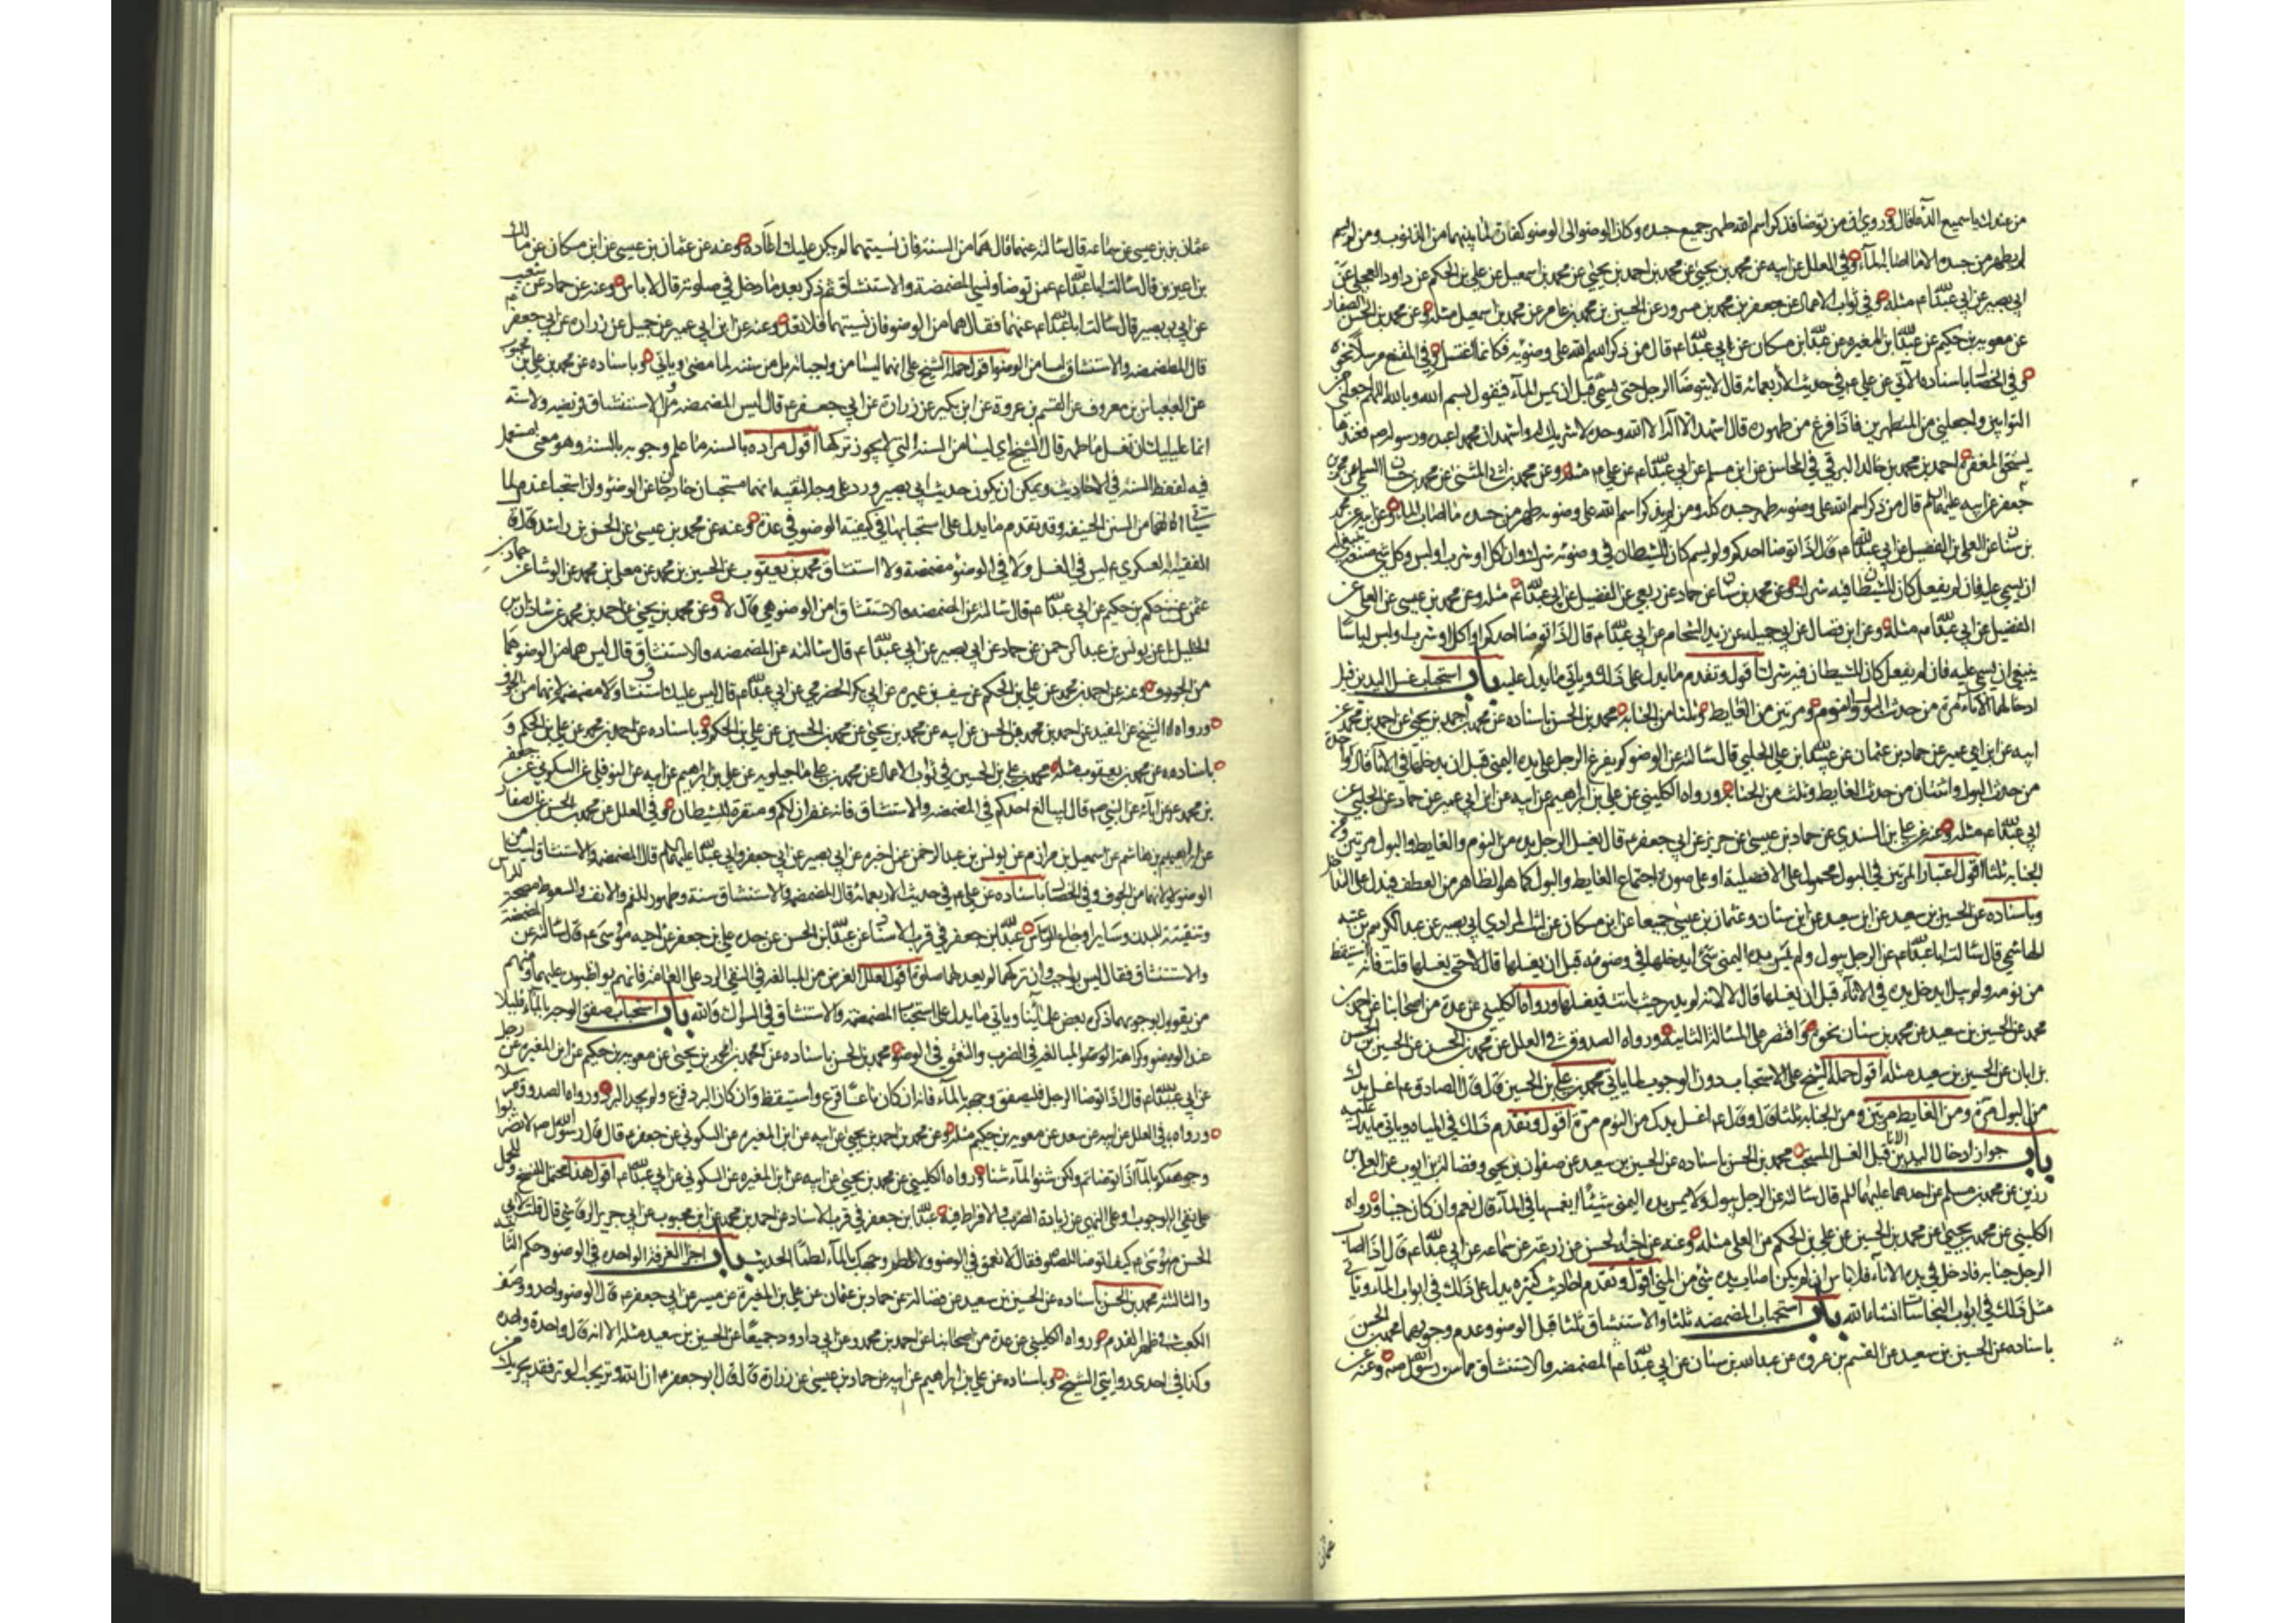 من عندك يا سميع الدعاء قال وروي ان من توضا فذكر اسم الله طهر جميع جسده وكان الوضوء الى الوضوء كفارة لما بينهما من الذنوب ومن لم يسم
لم يطهر من جسده الا ما اصابه الماء وفي العلل عن ابيه عن محمد بن يحيى عن محمد بن احمد بن يحيى عن محمد بن اسمعيل عن علي بن الحكم عن داود العجلي عن
ابي بصير عن ابي عبدالله ع مثله وفي ثواب الاعمال عن جعفر بن محمد بن مسرور عن الحسين بن محمد بن عامر عن محمد بن اسمعيل مثله وعن محمد بن الحسن عن الصفار
عن معوية بن حكيم عن عبدالله بن المغيرة عن عبدالله بن مسكان عن ابي عبدالله ع قال من ذكر اسم الله على وضوئه فكانما اغتسل وفي المقنع مرسلا نحوه
وفي الخصال باسناده الاتي عن علي ع في حديث الاربعمائة قال لا يتوضا الرجل حتى يسمي قبل ان يمس الماء فيقول بسم الله وبالله اللهم اجعلني من
التوابين واجعلني من المتطهرين فاذا فرغ من طهوره قال اشهد ان لا اله الا الله وحده لا شريك له واشهد ان محمدا عبده ورسوله ص فعندها
يستحق المغفرة احمد بن محمد بن خالد البرقي في المحاسن عن ابن مسلم عن ابي عبدالله ع عن علي ع مثله وعن محمد بن المثنى عن محمد بن حسان السلمي عن محمد بن
جعفر عن ابيه عليهما السلام قال من ذكر اسم الله على وضوئه طهر جسده كله ومن لم يذكر اسم الله على وضوئه طهر من جسده ما اصابه الماء وعن ابيه عن محمد
بن سنان عن العلا بن الفضيل عن ابي عبدالله ع قال اذا توضا احدكم ولم يسم كان للشيطان في وضوئه شرك وان اكل او شرب او لبس وكل شيء صنعه ينبغي
ان يسمي عليه فان لم يفعل كان للشيطان فيه شرك وعن محمد بن سنان عن حماد عن ربعي عن الفضيل عن ابي عبدالله ع مثله وعن محمد بن عيسى عن العلا عن
الفضيل عن ابي عبدالله ع مثله وعن ابن فضال عن ابي جميله عن زيد الشحام عن ابي عبدالله ع قال اذا توضا احدكم او اكل او شرب او لبس لباسا
ينبغي ان يسمي عليه فان لم يفعل كان للشيطان فيه شرك اقول وتقدم ما يدل على ذلك وياتي ما يدل عليه باب استحباب غسل اليدين قبل
ادخالهما الاناء مرة من حدث البول والنوم ومرتين من الغايط وثلثا من الجنابة محمد بن الحسن باسناده عن محمد بن احمد بن يحيى عن احمد بن محمد عن
ابيه عن ابن ابي عمير عن حماد بن عثمان عن عبيدالله بن علي الحلبي قال سالته عن الوضوء كم يفرغ الرجل على يده اليمنى قبل ان يدخلها في الاناء قال واحدة
من حدث البول واثنتان من حدث الغايط وثلث من الجنابة ورواه الكليني عن علي بن ابراهيم عن ابيه عن ابن ابي عمير عن حماد عن الحلبي عن
ابي عبدالله ع مثله وعنه عن علي بن السندي عن حماد بن عيسى عن حريز عن ابي جعفر ع قال يغسل الرجل يده من النوم مرة ومن الغايط والبول مرتين ومن
الجنابة ثلثا اقول اعتبار المرتين في البول محمول على الافضلية او على صورة اجتماع الغايط والبول كما هو الظاهر من العطف فيدل على التداخل
وباسناده عن الحسين بن سعيد عن ابن سنان وعثمان بن عيسى جميعا عن ابن مسكان عن ليث المرادي ابي بصير عن عبد الكريم بن عتبه
الهاشمي قال سالت ابا عبدالله ع عن الرجل يبول ولم يمس يده اليمنى شيء ايدخلها في وضوئه قبل ان يغسلها قال لا حتى يغسلها قلت فانه استيقظ
من نومه ولم يبل ايدخل يده في الاناء قبل ان يغسلها قال لا لانه لا يدري حيث باتت يده فيغسلها ورواه الكليني عن عدة من اصحابنا عن احمد بن
محمد عن الحسين بن سعيد عن محمد بن سنان نحوه واقتصر على المسالة الثانية ورواه الصدوق في العلل عن محمد بن الحسن عن الحسين بن الحسن
بن ابان عن الحسين بن سعيد مثله اقول حمله الشيخ على الاستحباب دون الوجوب لما ياتي محمد بن علي بن الحسين قال قال الصادق ع اغسل يدك
من البول مرة ومن الغايط مرتين ومن الجنابة ثلثا قال وقال ع اغسل يدك من النوم مرة اقول وتقدم ذلك في المياه وياتي ما يدل عليه
باب جواز ادخال اليدين الاناء قبل الغسل المستحب محمد بن الحسن باسناده عن الحسين بن سعيد عن صفوان بن يحيى وفضالة بن ايوب عن العلا بن
رزين عن محمد بن مسلم عن احدهما عليهما السلم قال سالته عن الرجل يبول ولا يمس يده اليمنى شيئا ايغمسها في الماء قال نعم وان كان جنبا ورواه
الكليني عن محمد بن يحيى عن محمد بن الحسين عن علي بن الحكم عن العلا مثله وعنه عن اخيه الحسن عن زرعة عن سماعة عن ابي عبدالله ع قال اذا اصاب
الرجل جنابة فادخل يده في الاناء فلا باس ان لم يكن اصاب يده شيء من المني اقول وتقدم احاديث كثيرة يدل على ذلك في ابواب الماء وياتي
مثل ذلك في ابواب النجاسات انشاء الله باب استحباب المضمضه ثلثا والاستنشاق ثلثا قبل الوضوء وعدم وجوبهما محمد بن الحسن
باسناده عن الحسين بن سعيد عن القسم بن عروة عن عبدالله بن سنان عن ابي عبدالله ع قال المضمضه والاستنشاق مما سن رسول الله ص وعنه عن
عثمان
عثمان بن عيسى عن سماعة قال سالته عنهما قال هما من السنة فان نسيتهما لم يكن عليك اعادة وعنه عن عثمان بن عيسى عن ابن مسكان عن مالك
بن اعين قال سالت ابا عبدالله ع عمن توضا ونسي المضمضة والاستنشاق ثم ذكر بعد ما دخل في صلوته قال لا باس وعنه عن حماد عن شعيب
عن ابي بصير قال سالت ابا عبدالله ع عنهما فقال هما من الوضوء فان نسيتهما فلا تعد وعنه عن ابن ابي عمير عن جميل عن زرارة عن ابي جعفر ع
قال المضمضه والاستنشاق ليسا من الوضوء اقول حمله الشيخ على انهما ليسا من واجباته بل من سننه لما مضى وياتي وباسناده عن محمد بن علي بن محبوب
عن العباس بن معروف عن القسم بن عروة عن ابن بكير عن زرارة عن ابي جعفر ع قال ليس المضمضه والاستنشاق فريضه ولا سنة
انما عليك ان تغسل ما ظهر قال الشيخ اي ليسا من السنة التي لا يجوز تركها اقول مراده بالسنة ما علم وجوبه بالسنة وهو معنى يستعمل
فيه لفظ السنة في الاحاديث ويمكن ان يكون حديث ابي بصير ورد على وجه التقية انهما مستحبان خارجان عن الوضوء وان استحبا عنده لما
سياتي انهما من السنن الحنيفية وقد تقدم ما يدل على استحبابهما في كيفية الوضوء في عدة وعنه عن محمد بن عيسى عن الحسن بن راشد قال قال
الفقيه العسكري ع ليس في الغسل ولا في الوضوء مضمضة ولا استنشاق محمد بن يعقوب عن الحسين بن محمد عن معلى بن محمد عن الوشا عن حماد بن
عثمن عن حكم بن حكيم عن ابي عبدالله ع قال سالته عن المضمضه والاستنشاق امن الوضوء هي قال لا وعن محمد بن يحيى عن احمد بن محمد عن شاذان بن
الخليل عن يونس بن عبد الرحمن عن حماد عن ابي بصير عن ابي عبدالله ع قال سالته عن المضمضه والاستنشاق قال ليس هما من الوضوء هما
من الجوف وعنه عن احمد بن محمد عن علي بن الحكم عن سيف بن عميره عن ابي بكر الحضرمي عن ابي عبدالله ع قال ليس عليك استنشاق ولا مضمضه لانهما من الجوف
ورواه الشيخ عن المفيد عن احمد بن محمد بن الحسن عن ابيه عن محمد بن يحيى عن محمد بن الحسين عن علي بن الحكم وباسناده عن احمد بن محمد عن علي بن الحكم و
باسناده عن محمد بن يعقوب مثله محمد بن علي بن الحسين في ثواب الاعمال عن محمد بن علي ماجيلويه عن علي بن ابراهيم عن ابيه عن النوفلي عن السكوني عن جعفر
بن محمد عن ابائه عن النبي ص قال ليبالغ احدكم في المضمضه والاستنشاق فانه غفران لكم ومنفرة للشيطان وفي العلل عن محمد بن الحسن عن الصفار
عن ابراهيم بن هاشم عن اسمعيل بن مرار عن يونس بن عبد الرحمن عن اخبره عن ابي بصير عن ابي جعفر وابي عبدالله عليهما السلام قالا المضمضه والاستنشاق ليسا من
الوضوء لانهما من الجوف وفي الخصال باسناده عن علي ع في حديث الاربعمائة قال المضمضه والاستنشاق سنة وطهور للفم والانف والسعوط مصحة للراس
وتنقية للبدن وساير اوجاع الراس عبدالله بن جعفر في قرب الاسناد عن عبدالله بن الحسن عن جده علي بن جعفر عن اخيه موسى ع قال سالته عن المضمضة
والاستنشاق فقال ليس بواجب وان تركهما لم يعد لهما صلوة اقول لعل الغرض من المبالغة في النفي الرد على العامة فانهم يواظبون عليهما ومنهم
من يقول بوجوبهما ذكره بعض علمائنا وياتي ما يدل على استحباب المضمضة والاستنشاق في السواك والله باب استحباب صفق الوجه بالماء قليلا
عند الوضوء وكراهة الوضوء المبالغة في الضرب والتعمق في الوضوء محمد بن الحسن باسناده عن محمد بن احمد بن يحيى عن معوية بن حكيم عن ابن المغيرة عن رجل
عن ابي عبدالله ع قال اذا توضا الرجل فليصفق وجهه بالماء فانه ان كان ناعسا فزع واستيقظ وان كان البرد فزع ولم يجد البرد ورواه الصدوق مرسلا
ورواه في العلل عن ابيه عن سعد عن معوية بن حكيم مثله وعن محمد بن احمد بن يحيى عن ابيه عن ابن المغيرة عن السكوني عن جعفر ع قال قال رسول الله ص لا تضربوا
وجوهكم بالماء اذا توضاتم ولكن شنوا الماء شنا ورواه الكليني عن محمد بن يحيى عن ابيه عن ابن المغيرة عن السكوني عن ابي عبدالله ع اقول هذا محتمل للنسخ وللحمل
على نفي الوجوب وعلى النهي عن زيادة الضرب والافراط فيه عبدالله بن جعفر في قرب الاسناد عن احمد بن محمد عن ابن محبوب عن ابي جرير الرقاشي قال قلت لابي
الحسن موسى ع كيف اتوضا للصلوة فقال لا تعمق في الوضوء ولا تلطم وجهك بالماء لطما الحديث باب اجزاء الغرفة الواحدة في الوضوء وحكم الثانية
والثالثة محمد بن الحسن باسناده عن الحسين بن سعيد عن فضالة عن حماد بن عثمان عن علي بن المغيرة عن ميسر عن ابي جعفر ع قال الوضوء واحد ووصف
الكعب في ظهر القدم ورواه الكليني عن عدة من اصحابنا عن احمد بن محمد وعن ابي داود جميعا عن الحسين بن سعيد مثله الا انه قال واحدة واحدة
وكذا في احدى روايتي الشيخ وباسناده عن علي بن ابراهيم عن ابيه عن حماد بن عيسى عن زرارة قال قال ابو جعفر ع ان الله وتر يحب الوتر فقد يجزيك من